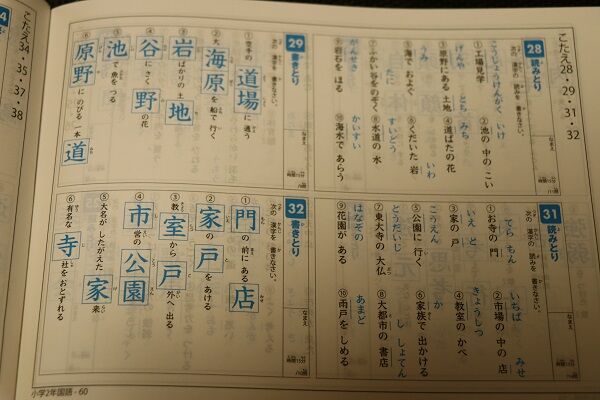 こたえ28・29・31・32
28 読みとり
次の 漢字の 読みを 書きなさい。
なまえ
①工場見学
こうじょうけんがく
②池の 中の こい
いけ
③原野にある 土地
げんや とち
④道ばたの 花
みち
⑤海で およぐ
うみ
⑥くだいた 岩
いわ
⑦ふかい 谷をのぞく
たに
⑧水道の 水
すいどう
⑨岩石を ほる
がんせき
⑩海水で あらう
かいすい
29 書きとり
次の 漢字を 書きなさい。
なまえ
①空手の 道場 に 通う
②大海原 を 船で 行く
③岩 ばかりの 土地
④谷 にさく 野の花
⑤池 で 魚を つる
⑥原野 に のびる 一本道
31 読みとり
次の 漢字の 読みを 書きなさい。
なまえ
①お寺の 門
てら もん
②市場の 中の 店
いちば みせ
③家の 戸
いえ と
④教室の かべ
きょうしつ
⑤公園に 行く
こうえん
⑥家族で 出かける
か
⑦東大寺の 大仏
とうだいじ
⑧大都市の 書店
し しょてん
⑨花園が ある
はなぞの
⑩雨戸を しめる
あまど
32 書きとり
次の 漢字を 書きなさい。
なまえ
①門 の 前に ある 店
②家の 戸 を あける
③教室 から 戸外へ 出る
④市営の 公園
⑤大名が したがえた 家来
⑥有名な 寺社を おとずれる
小学2年国語・60
34・35・37・38